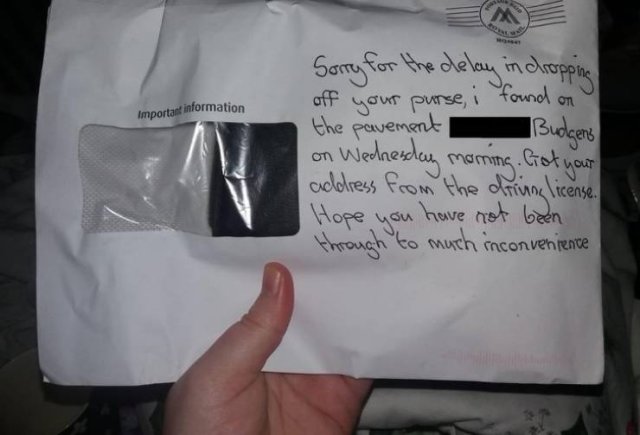 ROYAL MAIL
Important information
Sorry for the delay in dropping
off your purse, i found on
the pavement Budgens
on Wednesday morning. Got your
address from the driving license.
Hope you have not been
through to much inconvenience